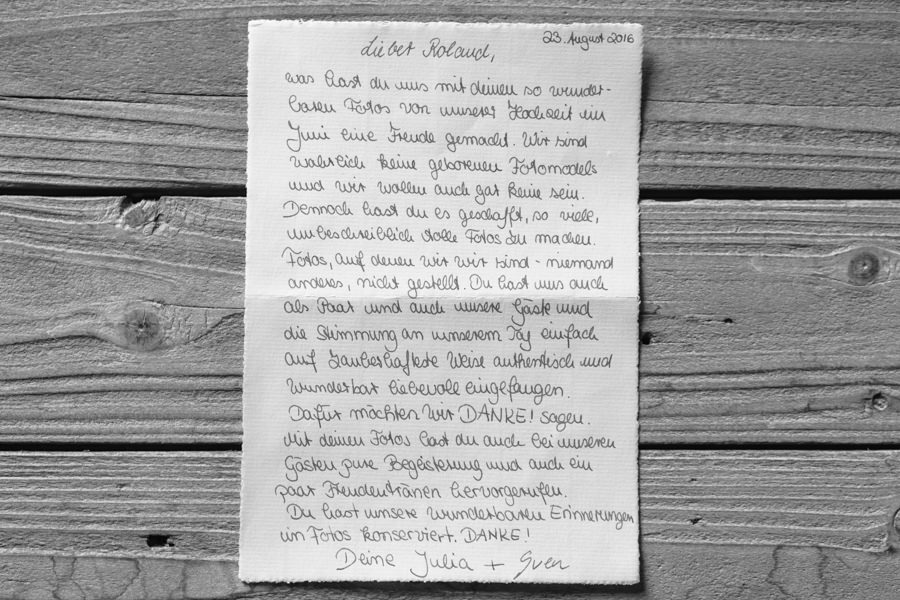 23. August 2016
Lieber Roland,
was hast du uns mit deinen so wunder-
baren Fotos von unserer Hochzeit im
Juni eine Freude gemacht. Wir sind
wahrlich keine geborenen Fotomodels
und wir wollen auch gar keine sein.
Dennoch hast du es geschafft, so viele,
unbeschreiblich tolle Fotos zu machen.
Fotos, auf denen wir wir sind - niemand
anderes, nicht gestellt. Du hast uns auch
als Paar und auch unsere Gäste und
die Stimmung an unserem Tag einfach
auf zauberhafteste Weise authentisch und
wunderbar liebevoll eingefangen.
Dafür möchten wir DANKE! sagen.
Mit deinen Fotos hast du auch bei unseren
Gästen pure Begeisterung und auch ein
paar Freudentränen hervorgerufen.
Du hast unsere wunderbaren Erinnerungen
in Fotos konserviert. DANKE!
Deine Julia + Sven